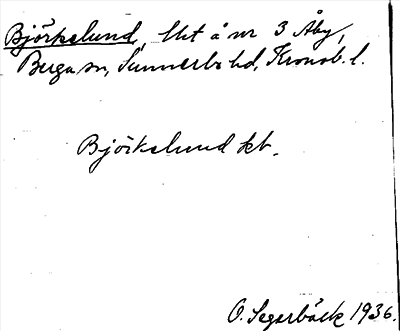 Björkelund, lht å nr 3 Åby,
Berga sn, Sunnerbo hd, Kronob. l.
Björkelund kt.
O. Segerbäck 1936.